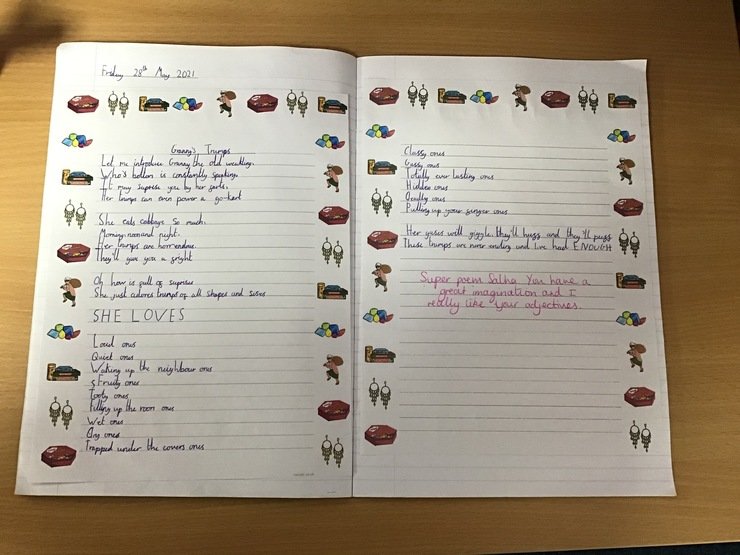 Friday 28th May 2021
Granny's Trumps
Let me introduce Granny the old weakling.
Who's bottom is constantly speaking.
It may suprise you by her
Her trumps can even power a go-kart
She eats cabbage so much.
Morning, noon and night.
Her trumps are horrendous.
They'll give you a fright
Oh how is full of suprises
She just adores trumps of all shapes and sises
SHE LOVES
Loud ones
Quiet ones
Waking up the neighbour ones
Fruity ones
Tooty ones
Filling up the room ones
Wet ones
Dry ones
Trapped under the covers ones
Classy ones
Gassy ones
Totally ever lasting ones
Hidden ones
Deadly ones
Pulling up your finger ones
Her gases will giggle, they'll huff and they'll puff
These trumps are never ending and I've had ENOUGH
Super poem Saliha You have a
great imagination and I
really like your adjectives.